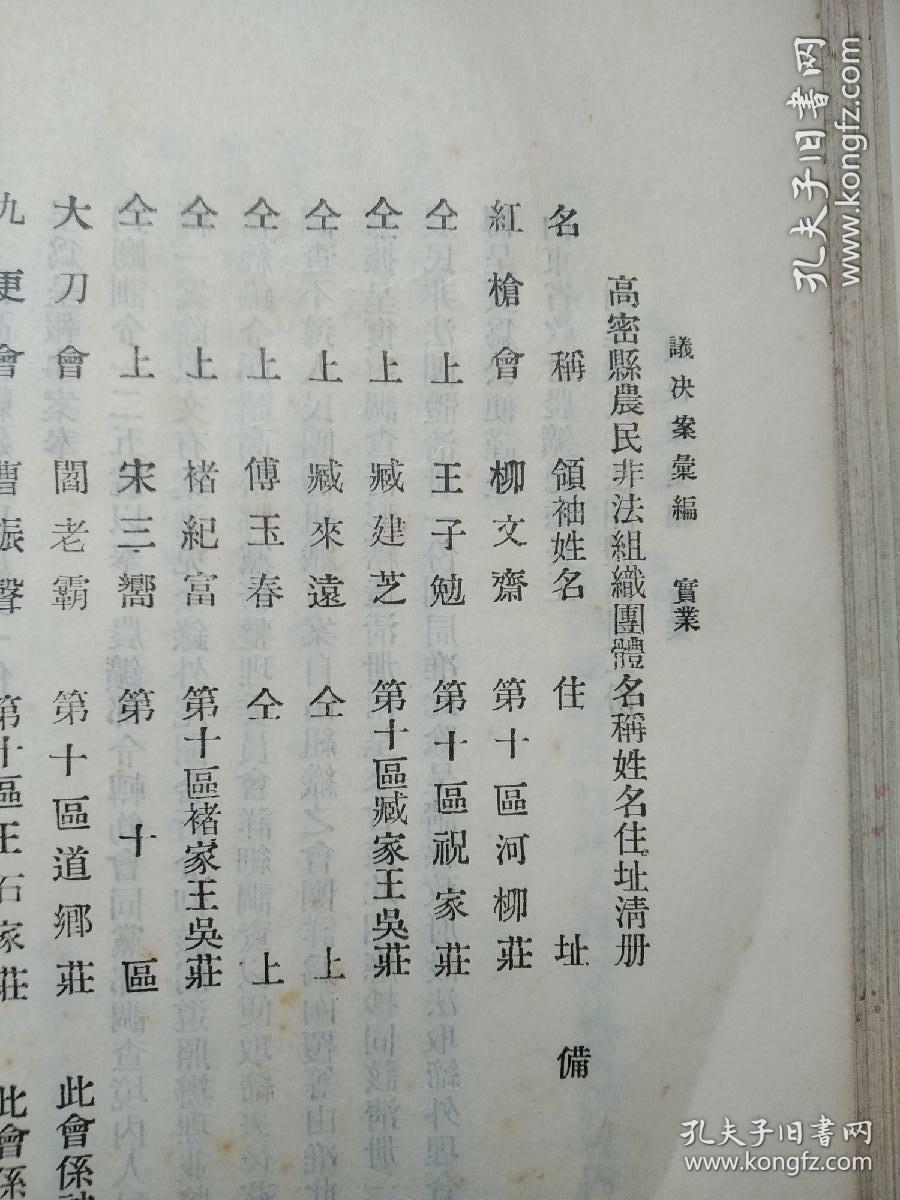 議決案彙編　實業
高密縣農民非法組織團體名稱姓名住址清册
名稱　領袖姓名　住址　備
紅槍會　柳文齋　第十區河柳莊
仝上　王子勉　第十區祝家莊
仝上　臧建芝　第十區臧家王吳莊
仝上　臧來遠　仝上
仝上　傅玉春　仝上
仝上　褚紀富　第十區褚家王吳莊
仝上　宋三嚮　第十區
大刀會　閻老霸　第十區道鄉莊　此會係
九更會　曹振聲　第十區王石家莊　此會係
孔夫子旧書网
www.kongfz.com
孔夫子旧書网
www.kongfz.com